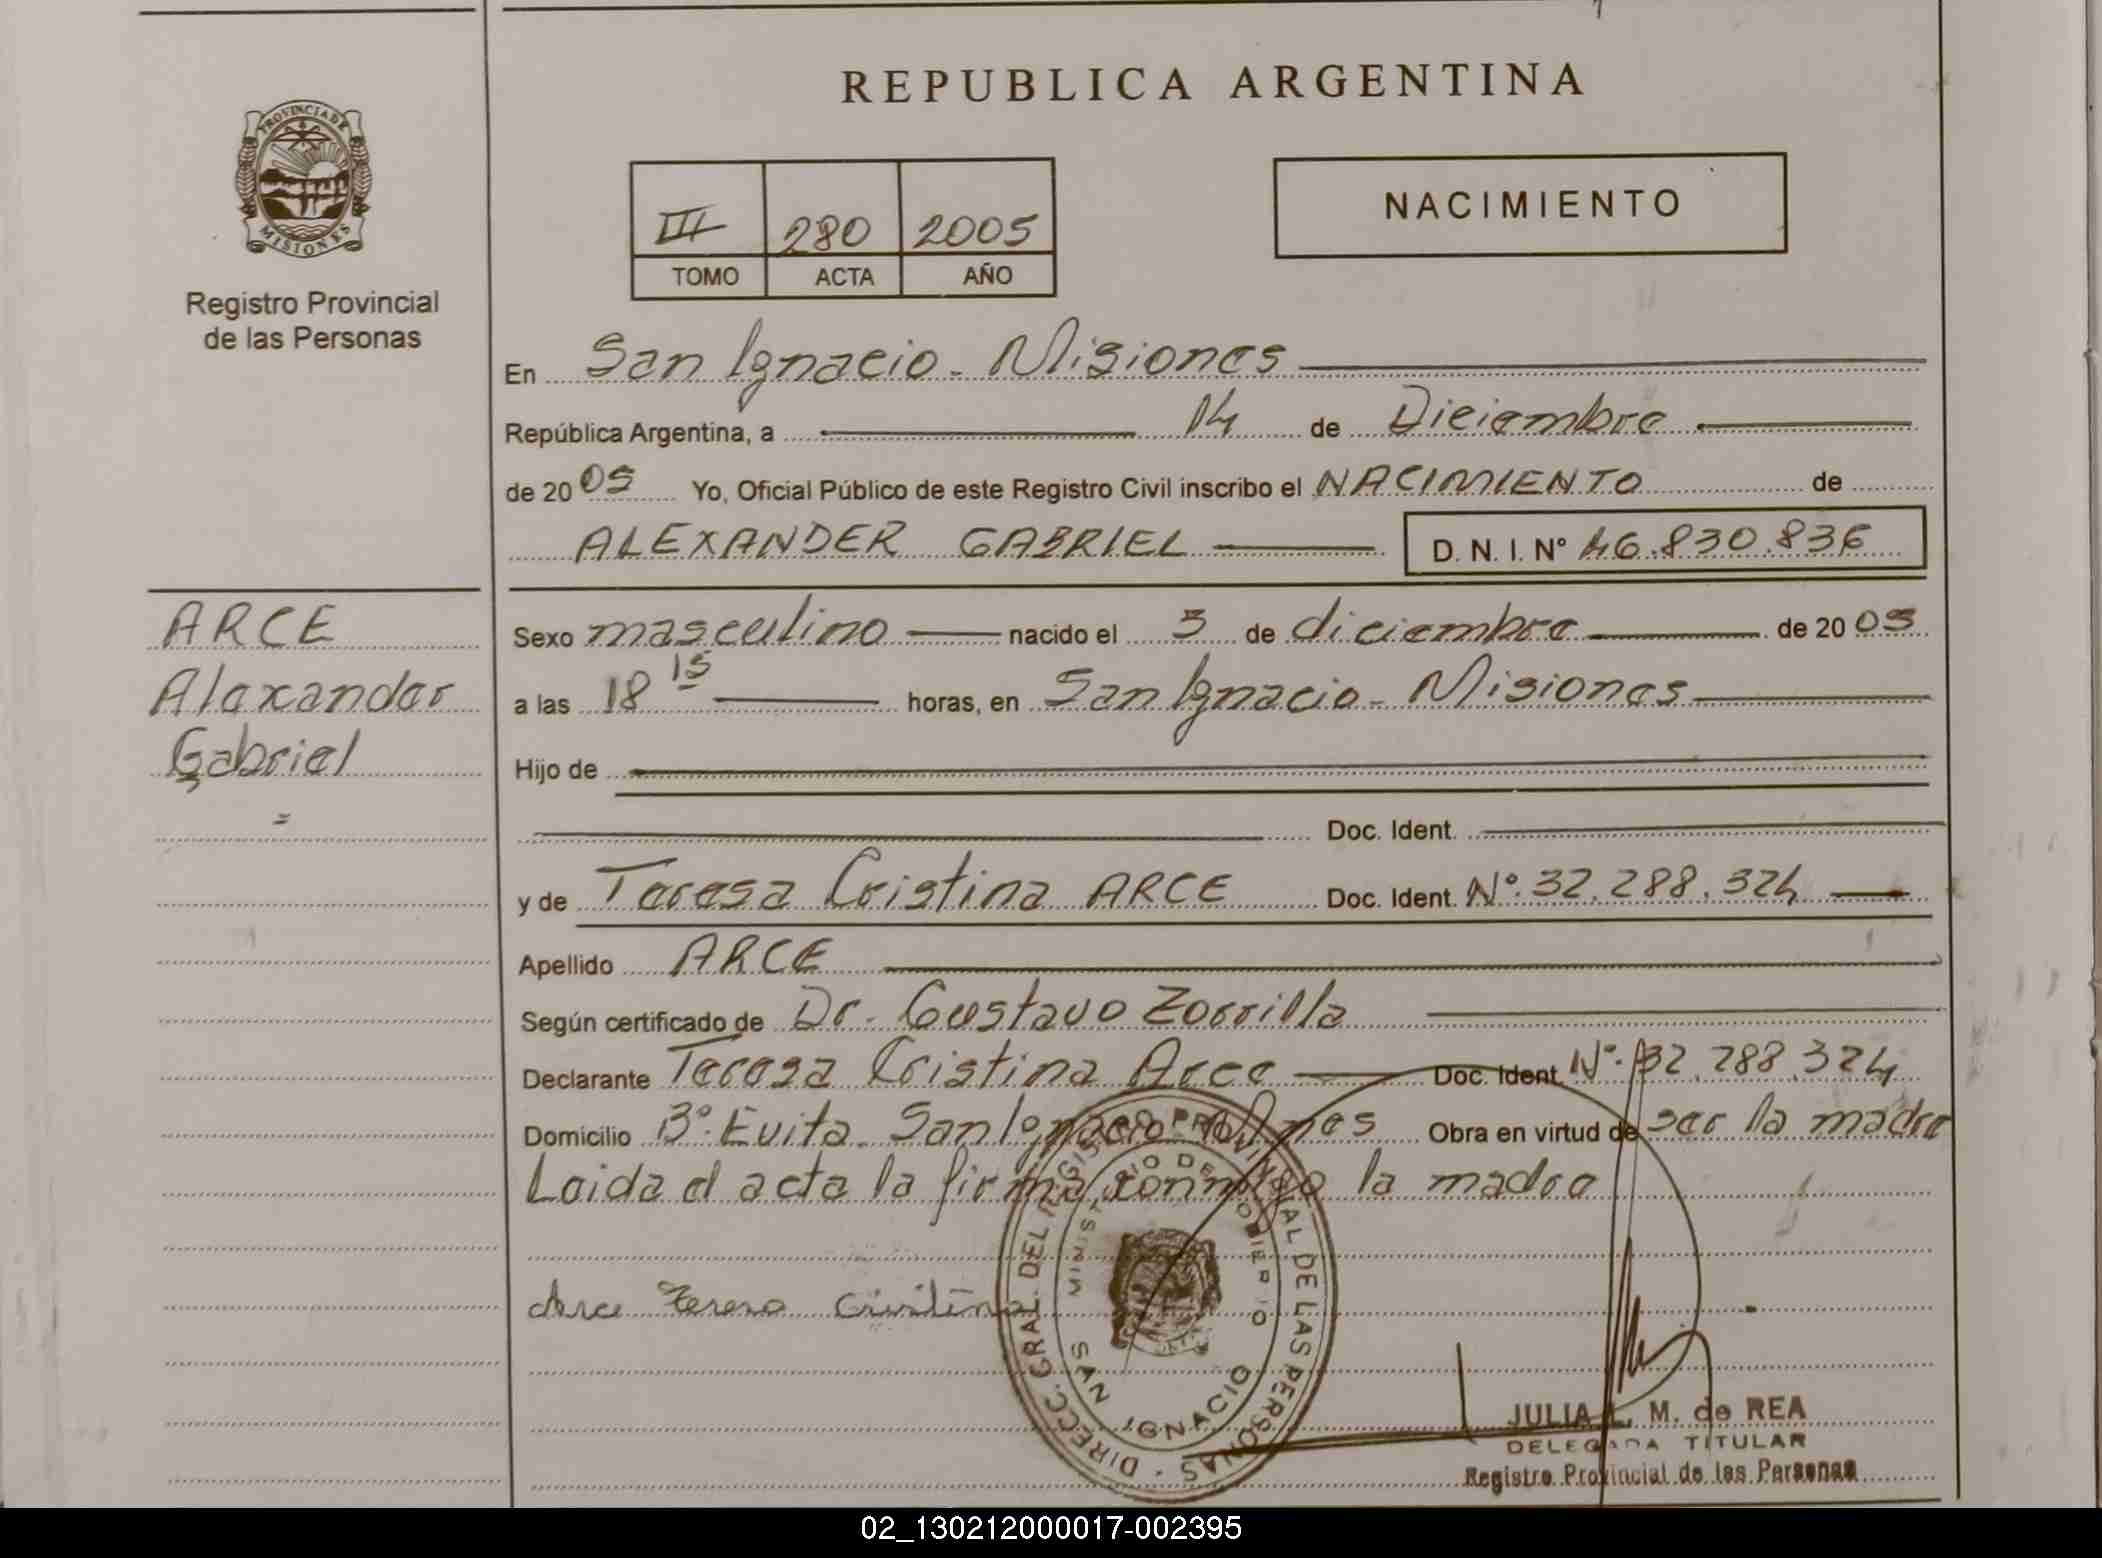 REPUBLICA ARGENTINA
PROVINCIA DE MISIONES
Registro Provincial
de las Personas
III 280 2005
TOMO ACTA AÑO
NACIMIENTO
En San Ignacio - Misiones
República Argentina, a 14 de Diciembre
de 2005 Yo, Oficial Público de este Registro Civil inscribo el NACIMIENTO de
ALEXANDER GABRIEL D. N. I. Nº 46.830.836
ARCE
Alexander
Gabriel
Sexo masculino nacido el 3 de diciembre de 2005
a las 18 15 horas, en San Ignacio - Misiones
Hijo de
Doc. Ident.
y de Teresa Cristina ARCE Doc. Ident. Nº. 32.288.324
Apellido ARCE
Según certificado de Dr. Gustavo Zorrilla
Declarante Teresa Cristina Arce Doc. Ident. Nº. 32.288.324
Domicilio Bº. Evita San Ignacio Mnes Obra en virtud de ser la madre
Leida el acta la firma conmigo la madre
Arce Teresa Cristina
DIRECC. GRAL. DEL REGISTRO PROVINCIAL DE LAS PERSONAS
MINISTERIO DE GOBIERNO
SAN IGNACIO
JULIA L. M. de REA
DELEGADA TITULAR
Registro Provincial de las Personas
02_130212000017-002395